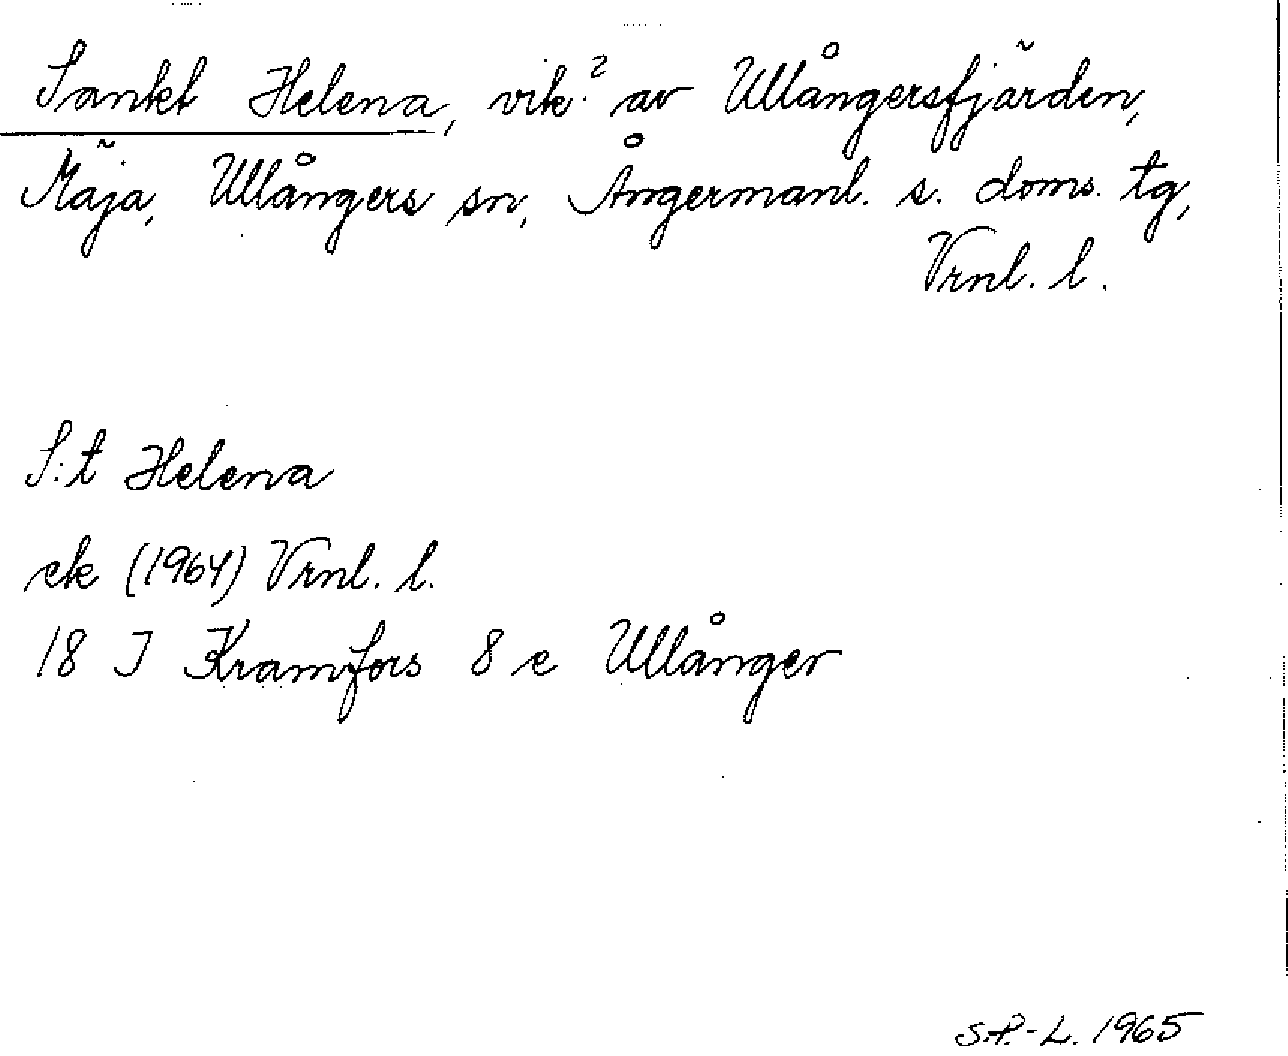 Sankt Helena, vik? av Ullångersfjärden,
Mäja, Ullångers sn, Ångermanl. s. doms. tg,
Vrnl. l.
S:t Helena
ek (1964) Vrnl. l.
18 I Kramfors 8 e Ullånger
S.P.-L. 1965